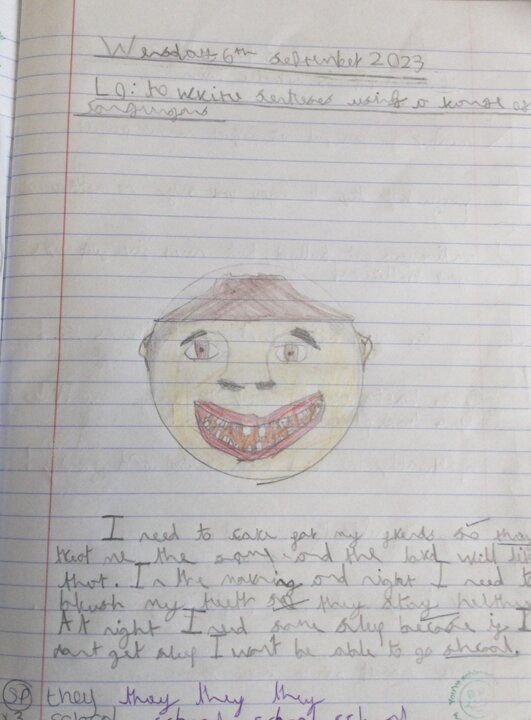 Wensday 6th September 2023
LO: to write sentences using a range of
I need to care for my friends so they
treat me the same. and the lord will li
that. In the morning and night I need t
brush my teeth so they stay helth
At night I need some sleep because if I
dont get sleep I wont be able to go shcool.
Sp they they they they
x3 school school school school